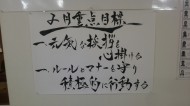 2月重点目標
一元気な挨拶を
心掛ける
一ルールとマナーを守り
積極的に行動する